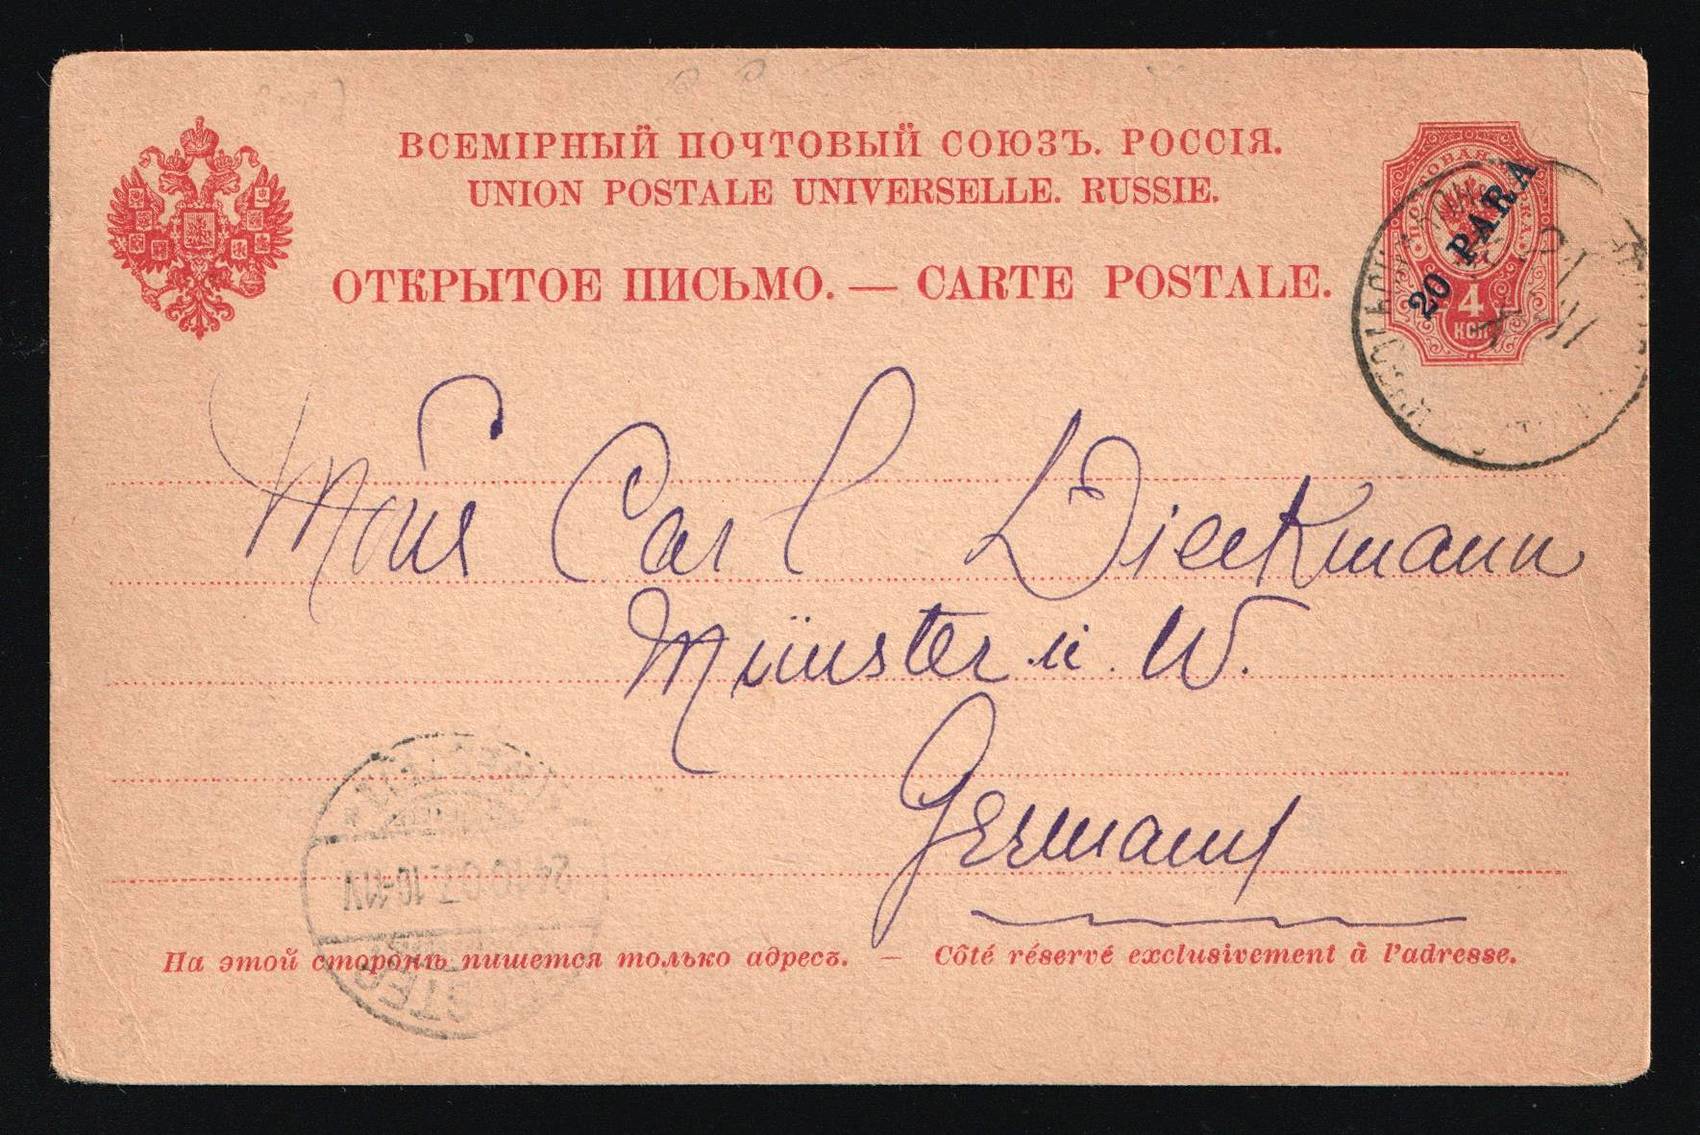 ВСЕМІРНЫЙ ПОЧТОВЫЙ СОЮЗЪ. РОССІЯ.
UNION POSTALE UNIVERSELLE. RUSSIE.
ОТКРЫТОЕ ПИСЬМО. — CARTE POSTALE.
20 PARA
4
КОП
Mons Carl Dieckmann
Münster i. W.
Germany
24.10.07. 10-11V
На этой сторонѣ пишется только адресъ. — Côté réservé exclusivement à l'adresse.